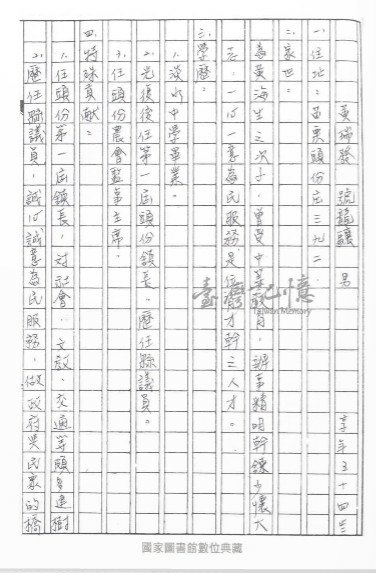 黃瑞發 號龍讓 男 享年五十四歲
一、住址：苗栗頭份庄三九二
二、家世：
為黃海生之次子，曾受中等教育，辦事精明幹練少懷大
志，一心一意為民服務是位才幹之人才。
三、學歷：
1.淡水中學畢業。
2.光復後任第一屆頭份鎮長，歷任縣議員。
3.任頭份農會監事主席。
四、特殊貢獻：
1.任頭份第一屆鎮長，對社會、文教、交通等頗多建樹
2.歷任縣議員，誠心誠意為民服務，做政府與民眾的橋
臺灣記憶
Taiwan Memory
國家圖書館數位典藏